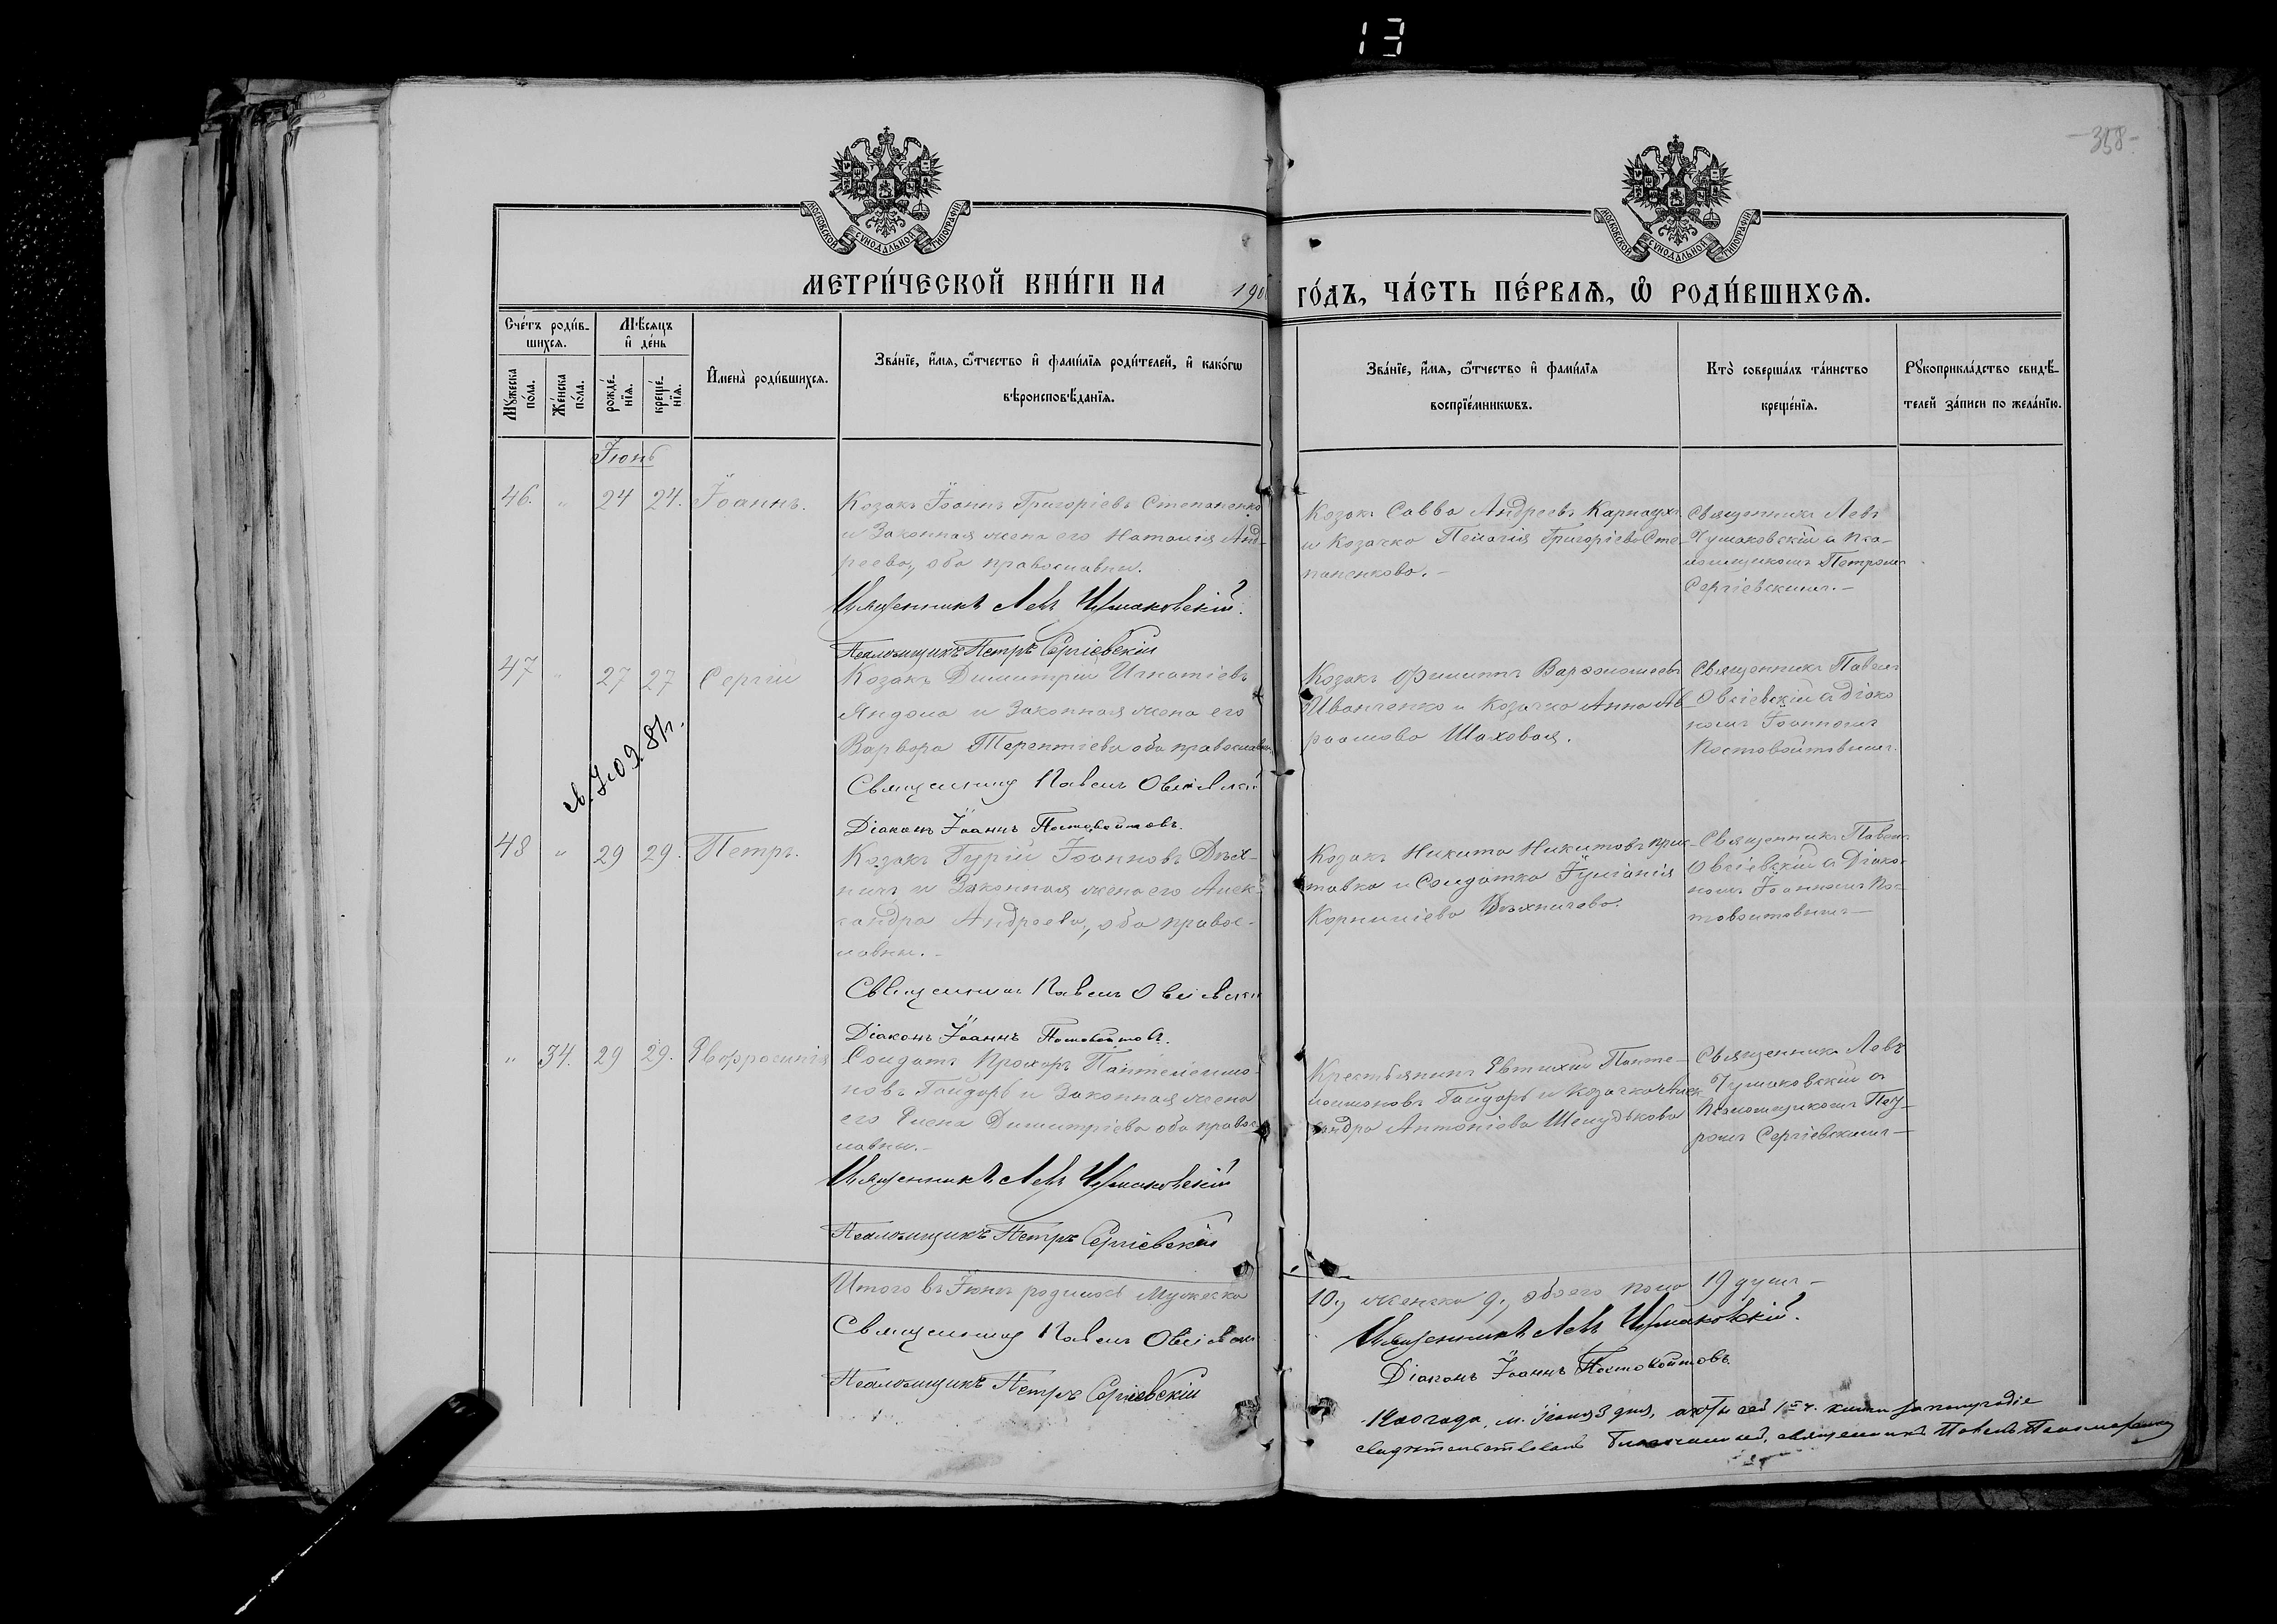 13
-358-
МОСКОВСКОЙ СѴНОДАЛЬНОЙ ТИПОГРАФІИ
МОСКОВСКОЙ СѴНОДАЛЬНОЙ ТИПОГРАФІИ
МЕТРИ́ЧЕСКОЙ КНИ́ГИ НА 1900 ГО́ДЪ, ЧА́СТЬ ПЕ́РВАѦ, Ѡ҆ РОДИ́ВШИХСѦ.
Сче́тъ роди́в-
шихсѧ.
Мꙋ́жеска по́ла.
Же́нска по́ла.
Мѣ́сѧцъ и҆ де́нь
рожде́-нїѧ.
креще́-нїѧ.
И҆мена̀ роди́вшихсѧ.
Зва́нїе, и҆́мѧ, ѻ҆́тчество и҆ фами́лїѧ роди́телей, и҆ како́гѡ
вѣроисповѣ́данїѧ.
Зва́нїе, и҆́мѧ, ѻ҆́тчество и҆ фами́лїѧ
воспрїе́мникѡвъ.
Кто̀ соверша́лъ та́инство
креще́нїѧ.
Рꙋкоприкла́дство свидѣ́-
телей за́писи по жела́нїю.
Іюнь
46. " 24 24. Іоаннъ.
Козакъ Іоаннъ Григоріевъ Степаненко
и законная жена его Наталія Анд-
реева, оба православны.
Священникъ Левъ Чумаковскій.
Псаломщикъ Петръ Сергіевскій
Козакъ Савва Андреевъ Карнаухъ
и Козачка Пелагія Григоріева Сте-
паненкова. –
Священникъ Левъ
Чумаковскій съ пса-
ломщикомъ Петромъ
Сергіевскимъ. –
47 " 27 27 Сергій
Козакъ Димитрій Игнатіевъ
Яндола и законная жена его
Варвара Терентіева оба православны
Священникъ Павелъ Овсіевскій
Діаконъ Іоаннъ Постовойтовъ.
Козакъ Филиппъ Варѳоломеевъ
Иванченко и Козачка Анна Ав-
раамова Шаховая.
Священникъ Павелъ
Овсіевскій съ Діако
номъ Іоанномъ
Постовойтовымъ.
48 " 29 29. Петръ.
Козакъ Гурій Іоанновъ Дѣх-
ничъ и законная жена его Алек-
сандра Андреева, оба правос-
лавны. –
Священникъ Павелъ Овсіевскій
Діаконъ Іоаннъ Постовойтовъ.
Козакъ Никита Никитовъ Прис-
тавка и Солдатка Іуліанія
Корниліева Дѣхничева.
Священникъ Павелъ
Овсіевскій съ Діако-
номъ Іоанномъ Пос-
товойтовымъ –
" 34. 29 29. Евфросинія
Солдатъ Прохоръ Пантелеимо-
новъ Гайдарь и законная жена
его Елена Димитріева оба правос-
лавны. –
Священникъ Левъ Чумаковскій
Псаломщикъ Петръ Сергіевскій
Крестьянинъ Евтихій Панте-
леимоновъ Гайдарь и Козачка Алек-
сандра Антоніева Шелудькова
Священникъ Левъ
Чумаковскій съ
Псаломщикомъ Пет-
ромъ Сергіевскимъ –
Итого въ Іюнѣ родилось мужеска 10, женска 9, обоего пола 19 душъ –
Священникъ Павелъ Овсіевскій
Священникъ Левъ Чумаковскій.
Псаломщикъ Петръ Сергіевскій
Діаконъ Іоаннъ Постовойтовъ.
1900 года, м. 3 дня, сей 1й ч. книги
свидѣтельствовалъ Благочинный, священникъ Павелъ